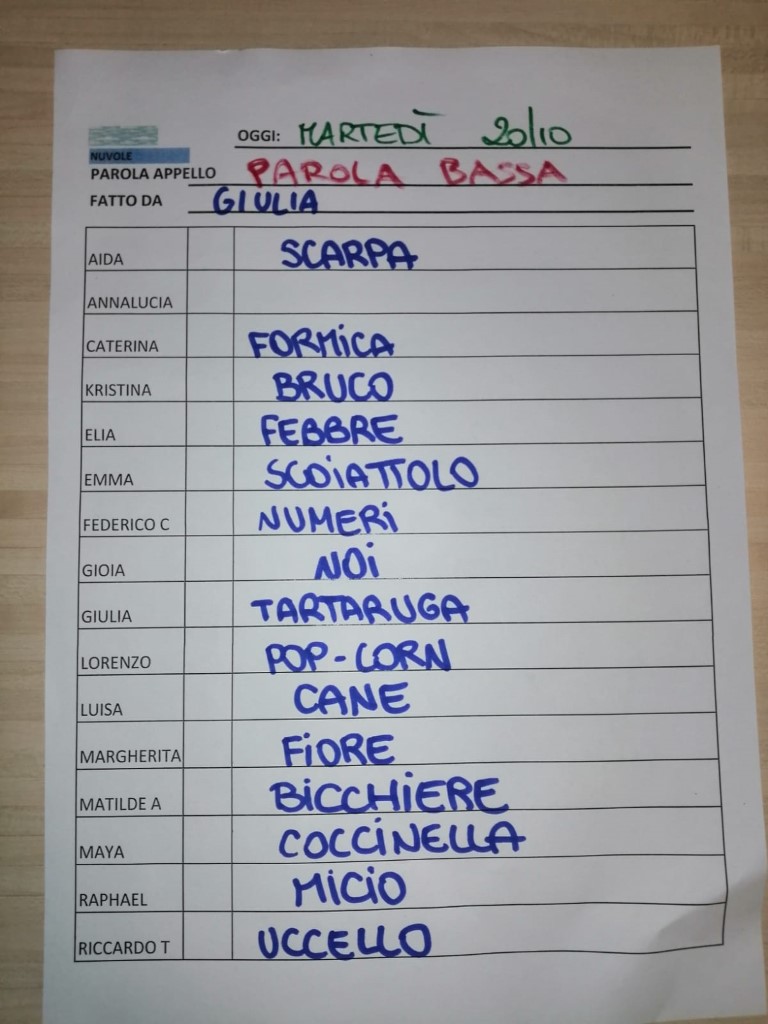 OGGI: MARTEDÌ 20/10
NUVOLE
PAROLA APPELLO PAROLA BASSA
FATTO DA GIULIA
AIDA SCARPA
ANNALUCIA
CATERINA FORMiCA
KRISTINA BRUCO
ELIA FEBBRE
EMMA SCOiATTOLO
FEDERICO C NUMERi
GIOIA NOi
GIULIA TARTARUGA
LORENZO POP-CORN
LUISA CANE
MARGHERITA FiORE
MATILDE A BiCCHiERE
MAYA COCCiNELLA
RAPHAEL MiCiO
RICCARDO T UCCELLO